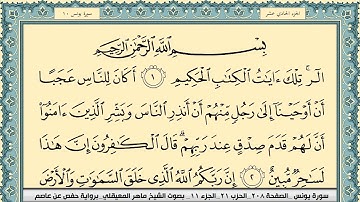 الجزء الحادي عشر سورة يونس ١٠
بِسْمِ ٱللَّهِ ٱلرَّحْمَٰنِ ٱلرَّحِيمِ
الٓر ۚ تِلْكَ ءَايَٰتُ ٱلْكِتَٰبِ ٱلْحَكِيمِ ۝١ أَكَانَ لِلنَّاسِ عَجَبًا
أَنْ أَوْحَيْنَآ إِلَىٰ رَجُلٍ مِّنْهُمْ أَنْ أَنذِرِ ٱلنَّاسَ وَبَشِّرِ ٱلَّذِينَ ءَامَنُوٓا۟
أَنَّ لَهُمْ قَدَمَ صِدْقٍ عِندَ رَبِّهِمْ ۗ قَالَ ٱلْكَٰفِرُونَ إِنَّ هَٰذَا
لَسَٰحِرٌ مُّبِينٌ ۝٢ إِنَّ رَبَّكُمُ ٱللَّهُ ٱلَّذِى خَلَقَ ٱلسَّمَٰوَٰتِ وَٱلْأَرْضَ
سورة يونس . الصفحة ٢٠٨ . الحزب ٢١ . الجزء ١١ . بصوت الشيخ ماهر المعيقلي . برواية حفص عن عاصم